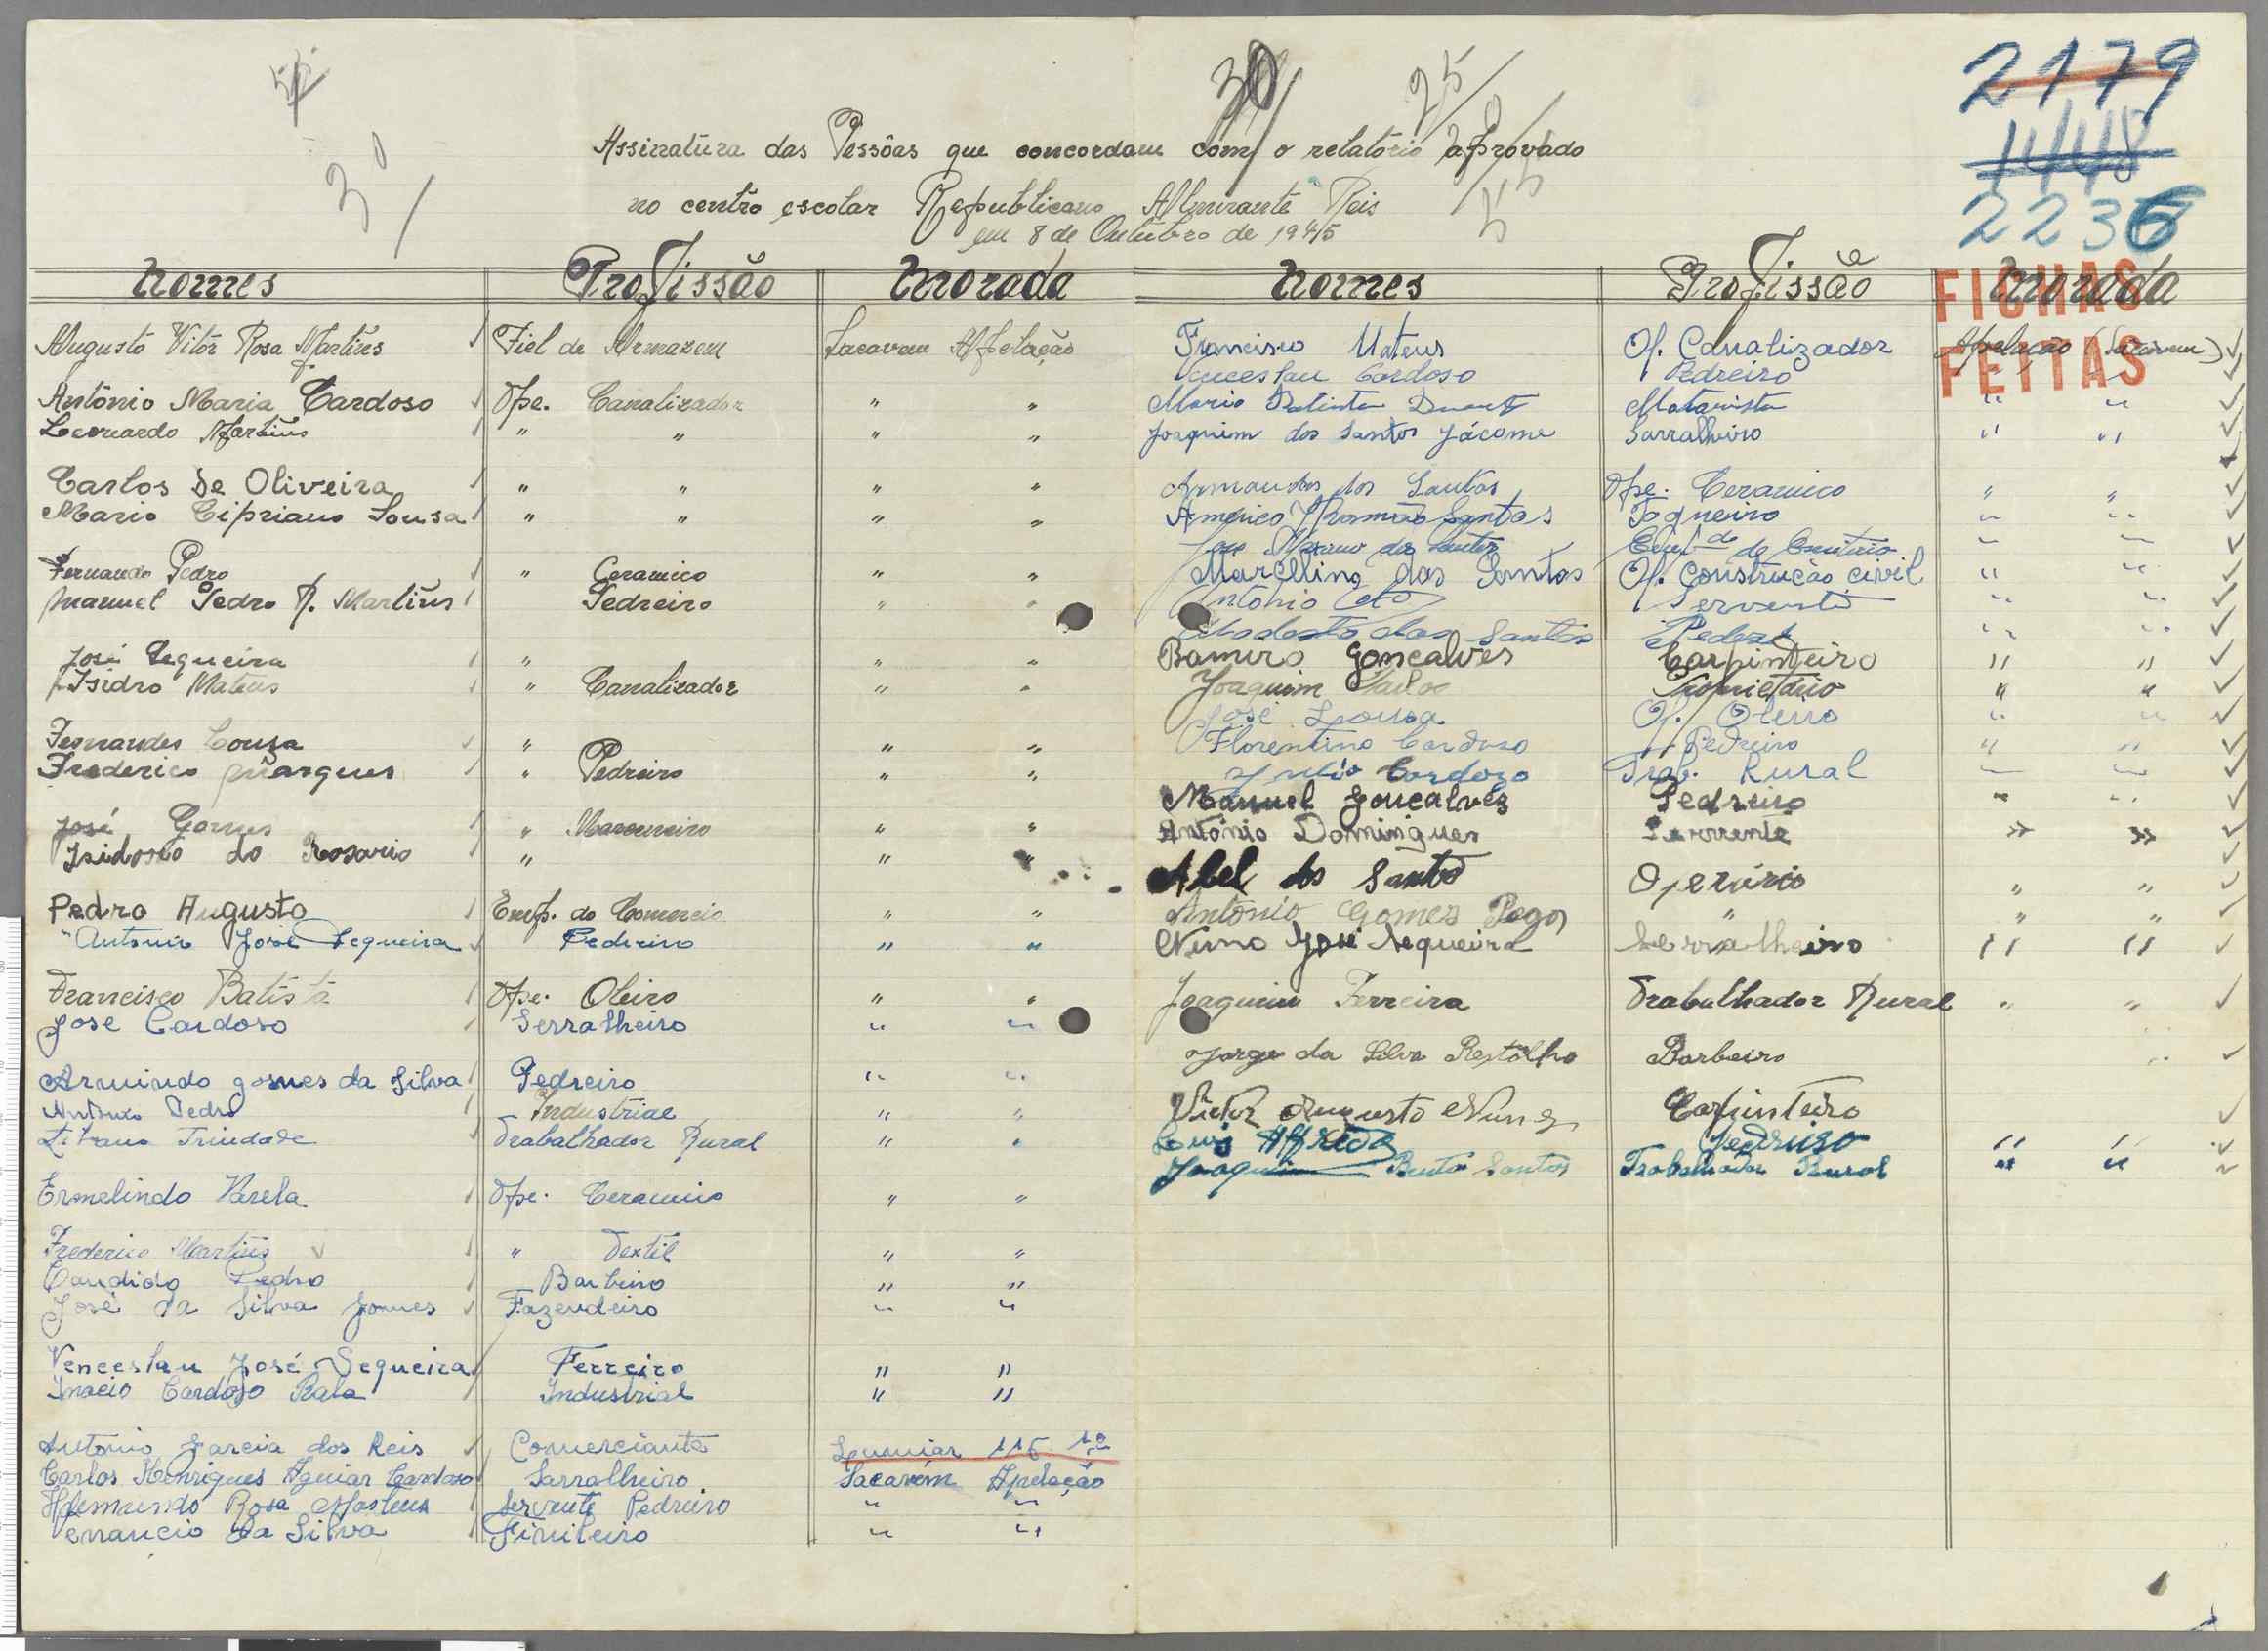 2179
1448
2236
30
25
30
55
Assinatura das Pessôas que concordam com o relatório aprovado
no centro escolar Republicano Almirante Reis
em 8 de Outubro de 1945
FICHAS
FEITAS
Nomes Profissão Morada
Augusto Vitor Rosa Martins Fiel de Armazem Sacavem Apelação
António Maria Cardoso Ope. Canalizador " "
Leonardo Martins " " " "
Carlos de Oliveira " " " "
Mario Cipriano Sousa " " " "
Fernando Pedro " Ceramico " "
Manuel Pedro R. Martins Pedreiro " "
José Sequeira " " "
Isidro Mateus " Canalizador " "
Fernandes Cousa " " "
Frederico Marques " Pedreiro " "
José Gomes " Marceneiro " "
Isidoro do Rosario " " "
Pedro Augusto Emp. do Comercio " "
Antonio José Sequeira Pedreiro " "
Francisco Batista Ope. Oleiro " "
José Cardoso Serralheiro " "
Armindo gomes da Silva Pedreiro " "
Antonio Pedro Industrial " "
Trindade Trabalhador Rural " "
Ermelindo Varela Ope. Ceramico " "
Frederico Martins " Textil " "
Candido Pedro Barbeiro " "
José da Silva Gomes Fazendeiro " "
Venceslau José Sequeira Ferreiro " "
Inacio Cardoso Rala Industrial " "
Antonio Garcia dos Reis Comerciante Lumiar 115 1º
Carlos Henriques Aguiar Cardoso Sarralheiro Sacavém Apelação
Rosa Martins Servente Pedreiro " "
Venancio da Silva " "
Nomes Profissão Morada
Francisco Mateus Of. Canalizador Apelação (Sacavem)
Venceslau Cardoso Pedreiro
Mario Batista Duarte Motorista " "
Joaquim dos Santos Jácome Sarralheiro " "
Armando dos Santos Ope. Ceramico " "
Americo Romão Santos Fogueiro " "
José dos Santos " "
Marcelino dos Santos Of. Construção civil " "
António Servente " "
Modesto dos Santos " "
Ramiro Gonçalves Carpinteiro " "
Joaquim Carlos Proprietário " "
José Sousa Of. Oleiro " "
Florentino Cardoso Pedreiro " "
Julio Cardozo Trab. Rural " "
Manuel Gonçalves Pedreiro " "
António Domingues Servente " "
Abel dos Santos Operário " "
António Gomes Pego " " "
Nuno José Sequeira Serralheiro " "
Joaquim Ferreira Trabalhador Rural " "
Jorge da Silva Restolho Barbeiro
Victor Augusto Nunes Carpinteiro
Luis Pedreiro " "
Joaquim Santos Trabalhador Rural " "